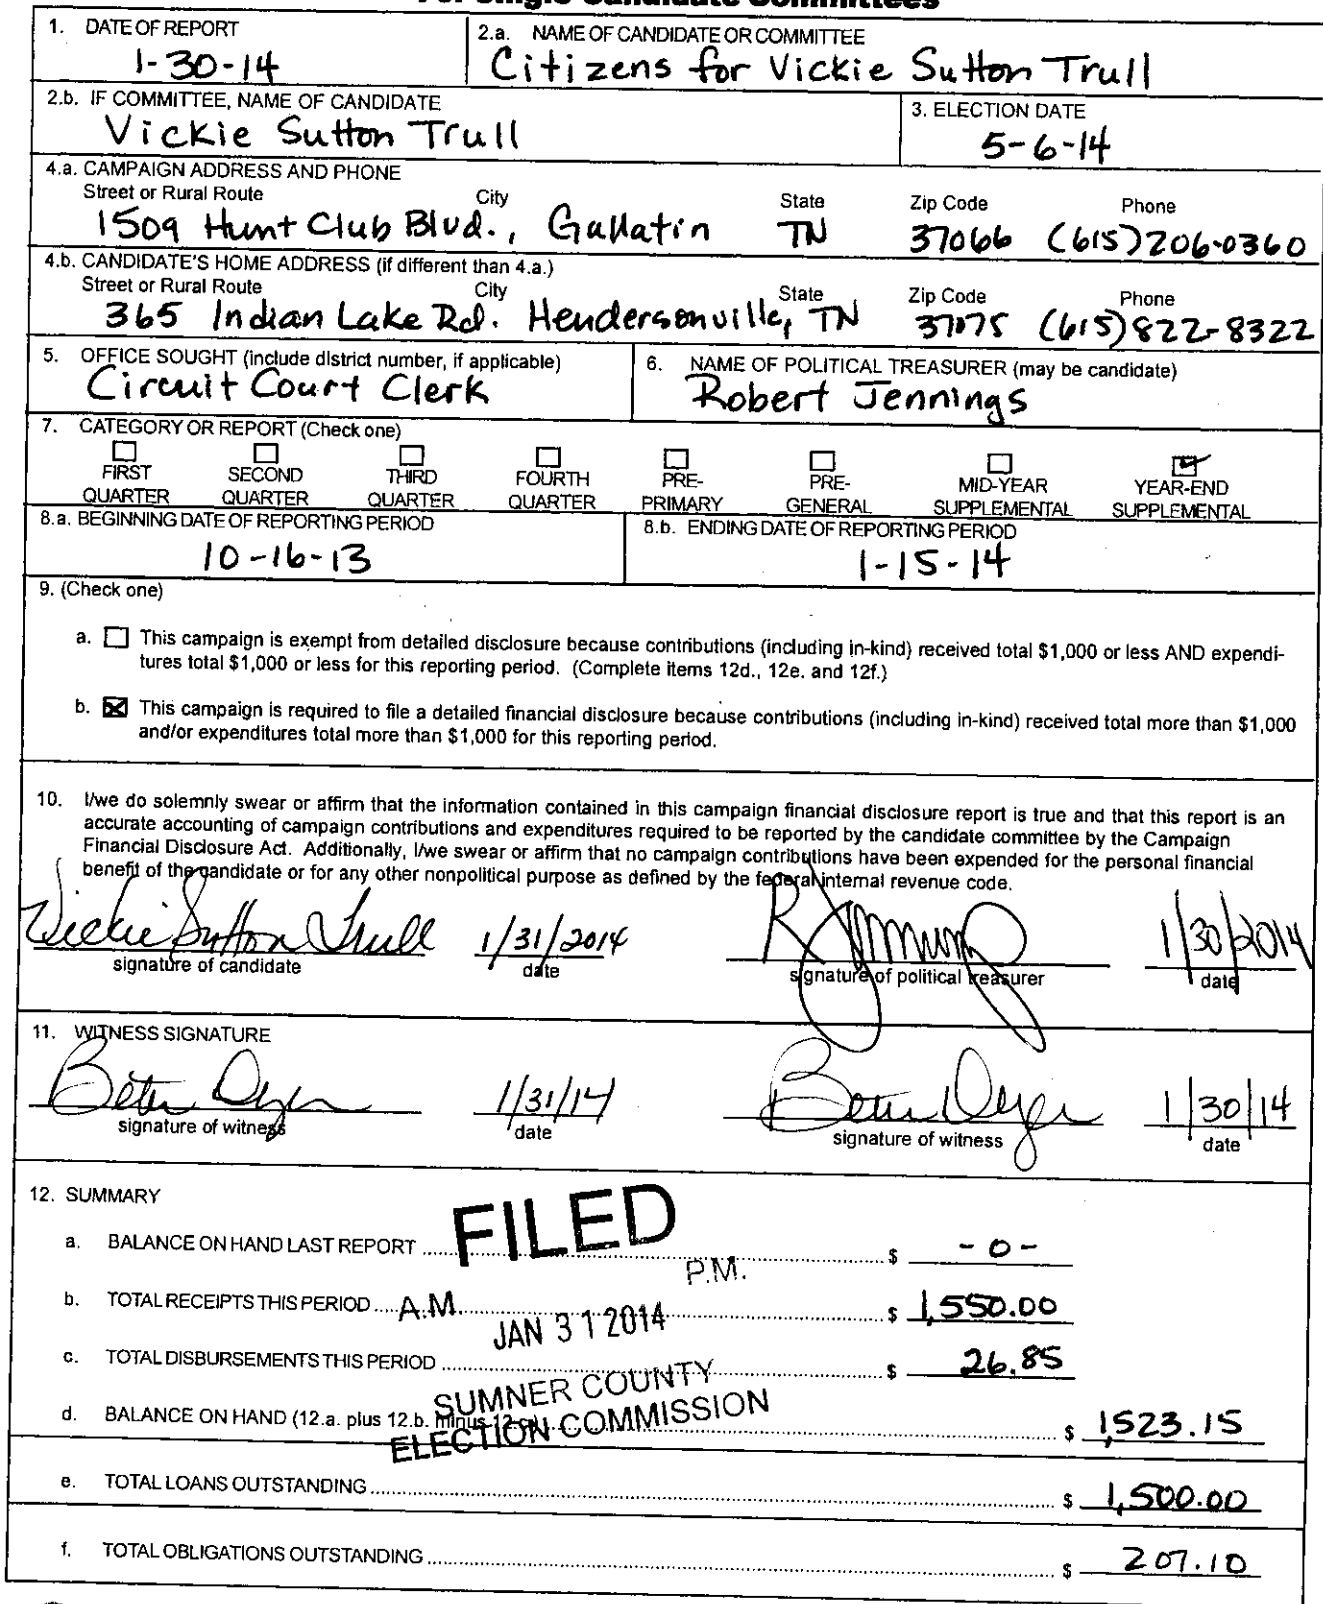 For Single Candidate Committees
1. DATE OF REPORT
1-30-14
2.a. NAME OF CANDIDATE OR COMMITTEE
Citizens for Vickie Sutton Trull
2.b. IF COMMITTEE, NAME OF CANDIDATE
Vickie Sutton Trull
3. ELECTION DATE
5-6-14
4.a. CAMPAIGN ADDRESS AND PHONE
Street or Rural Route City State Zip Code Phone
1509 Hunt Club Blvd., Gallatin TN 37066 (615)206-0360
4.b. CANDIDATE'S HOME ADDRESS (if different than 4.a.)
Street or Rural Route City State Zip Code Phone
365 Indian Lake Rd. Hendersonville, TN 37075 (615)822-8322
5. OFFICE SOUGHT (include district number, if applicable)
Circuit Court Clerk
6. NAME OF POLITICAL TREASURER (may be candidate)
Robert Jennings
7. CATEGORY OR REPORT (Check one)
FIRST QUARTER
SECOND QUARTER
THIRD QUARTER
FOURTH QUARTER
PRE-PRIMARY
PRE-GENERAL
MID-YEAR SUPPLEMENTAL
YEAR-END SUPPLEMENTAL
8.a. BEGINNING DATE OF REPORTING PERIOD
10-16-13
8.b. ENDING DATE OF REPORTING PERIOD
1-15-14
9. (Check one)
a. This campaign is exempt from detailed disclosure because contributions (including in-kind) received total $1,000 or less AND expendi-
tures total $1,000 or less for this reporting period. (Complete items 12d., 12e. and 12f.)
b. This campaign is required to file a detailed financial disclosure because contributions (including in-kind) received total more than $1,000
and/or expenditures total more than $1,000 for this reporting period.
10. I/we do solemnly swear or affirm that the information contained in this campaign financial disclosure report is true and that this report is an
accurate accounting of campaign contributions and expenditures required to be reported by the candidate committee by the Campaign
Financial Disclosure Act. Additionally, I/we swear or affirm that no campaign contributions have been expended for the personal financial
benefit of the candidate or for any other nonpolitical purpose as defined by the federal internal revenue code.
Vickie Sutton Trull 1/31/2014 1/30/2014
signature of candidate date signature of political treasurer date
11. WITNESS SIGNATURE
1/31/14 1/30/14
signature of witness date signature of witness date
12. SUMMARY
FILED
a. BALANCE ON HAND LAST REPORT $ -0-
P.M.
b. TOTAL RECEIPTS THIS PERIOD $ 1,550.00
A.M.
JAN 31 2014
c. TOTAL DISBURSEMENTS THIS PERIOD $ 26.85
SUMNER COUNTY
d. BALANCE ON HAND (12.a. plus 12.b. minus 12.c.) $ 1,523.15
ELECTION COMMISSION
e. TOTAL LOANS OUTSTANDING $ 1,500.00
f. TOTAL OBLIGATIONS OUTSTANDING $ 207.10